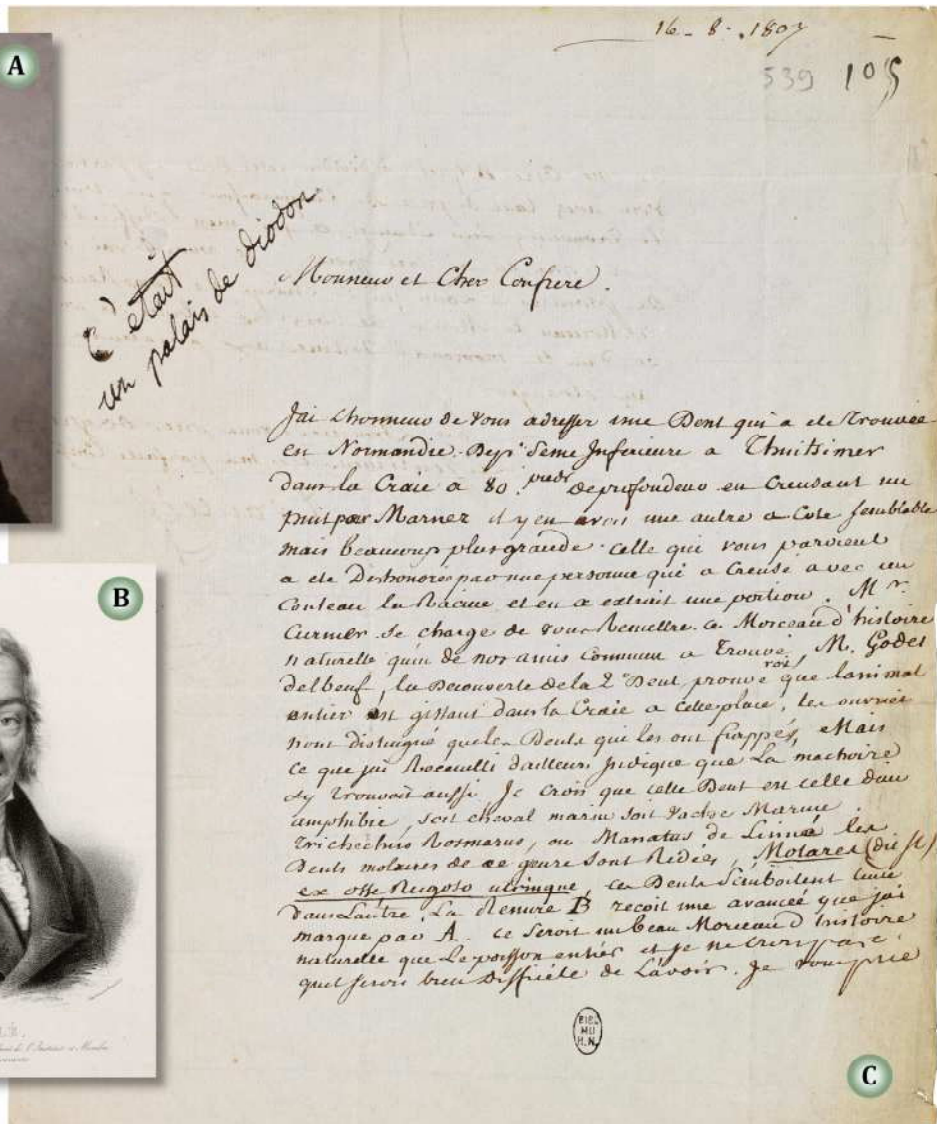 A
B
C
16 - 8 - 1807
539 105
C'était
un palais de diodon
Monsieur et Cher Confrere.
Jai Lhonneur de vous adresser une Dent qui a ete trouvée
en Normandie Dept Seine Inferieure a
dans la Craie a 80. pieds de profondeur en Creusant un
puit par Marner il y en avoit une autre a Cote semblable
mais beaucoup plus grande. Celle qui vous parvient
a ete Deshonorée par une personne qui a Creusé avec un
Couteau la Racine et en a extrait une portion. Mr.
Curmer se charge de vous Remettre ce Morceau d'histoire
naturelle qu'un de nos amis Commun a trouvé, M. Godet
delbeuf, la Decouverte de la 2e Dent prouve que lanimal
entier est gissant dans la Craie a cette place, les ouvrier
nont distingué que les Dents que les ont frappés, Mais
ce que jai Recueilli dailleurs indique que La machoire
sy trouvoit aussi, Je crois que cette Dent est celle dun
amphibie, soit cheval marin soit vache Marine
trichechus Rosmarus, ou Manatus de Linné les
Dents molaires de ce genre sont Ridées, Molares (dit il)
ex osse Rugoso utrinque, ces Dents Semboitent Lune
dans Lautre, La Renure B recoit une avancée que jai
marqué par A. ce seroit un beau Morceau d histoire
naturelle que Le poisson entier et je ne crois pas
quil serois bien Difficile de Lavoir. Je vous prie
BIBL.
MU
H.N.